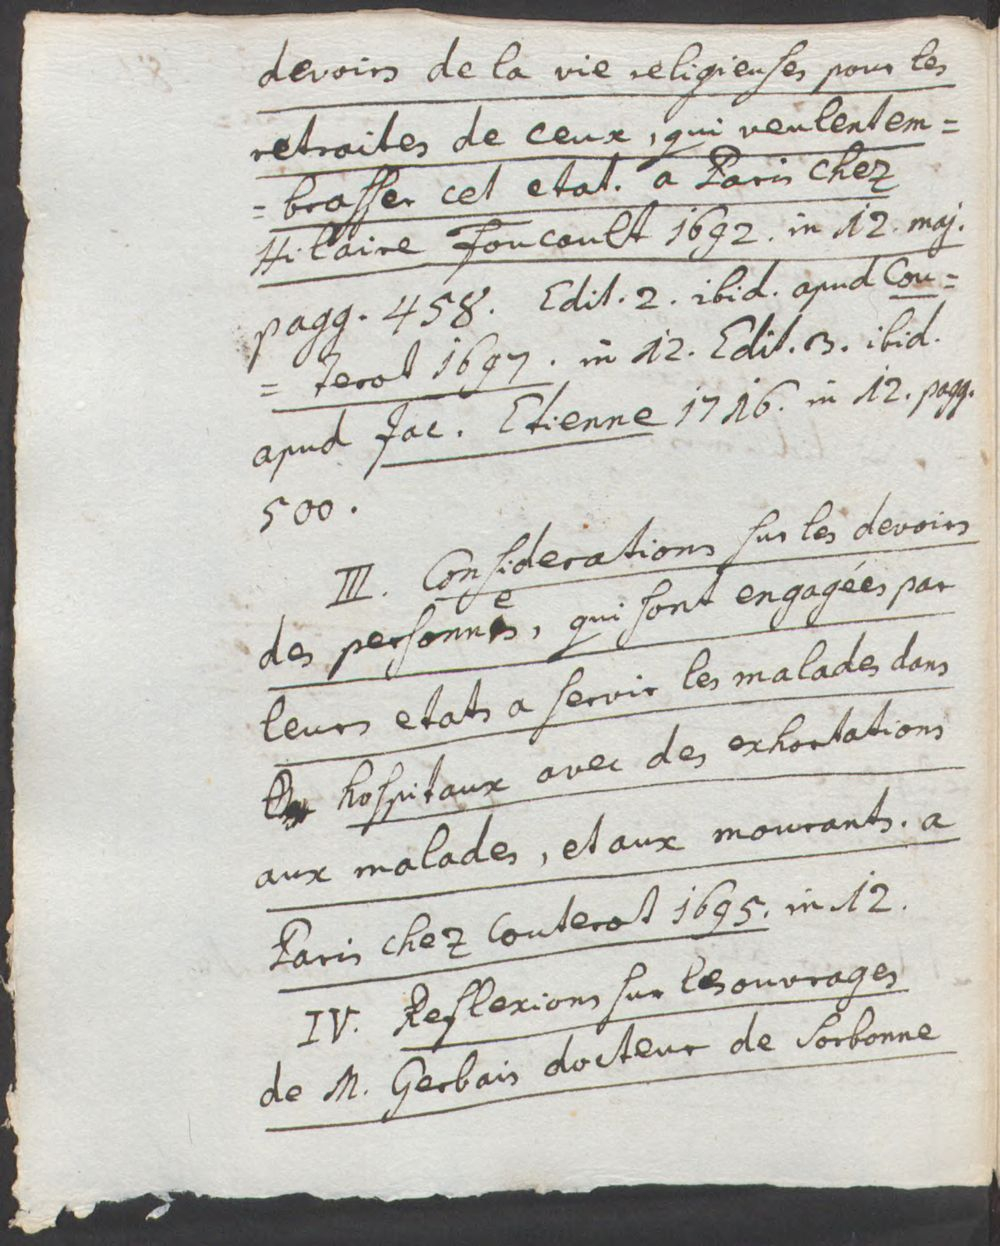 devoirs de la vie religieuses pour les
retraites de ceux, qui veulent em=
=brasser cet etat. a Paris chez
Hilaire Foucault 1692. in 12. maj.
pagg. 458. Edit. 2. ibid. apud Cou=
=terot 1697. in 12. Edit. 3. ibid.
apud Jac. Etienne 1716. in 12. pagg.
500.
III. Considerations sur les devoirs
des personnes, qui sont engagées par
leurs etats a servir les malades dans
hospitaux avec des exhortations
aux malades, et aux mourants. a
Paris chez Couterot 1695. in 12.
IV. Reflexions sur les ouvrages
de M. Gerbais docteur de Sorbonne